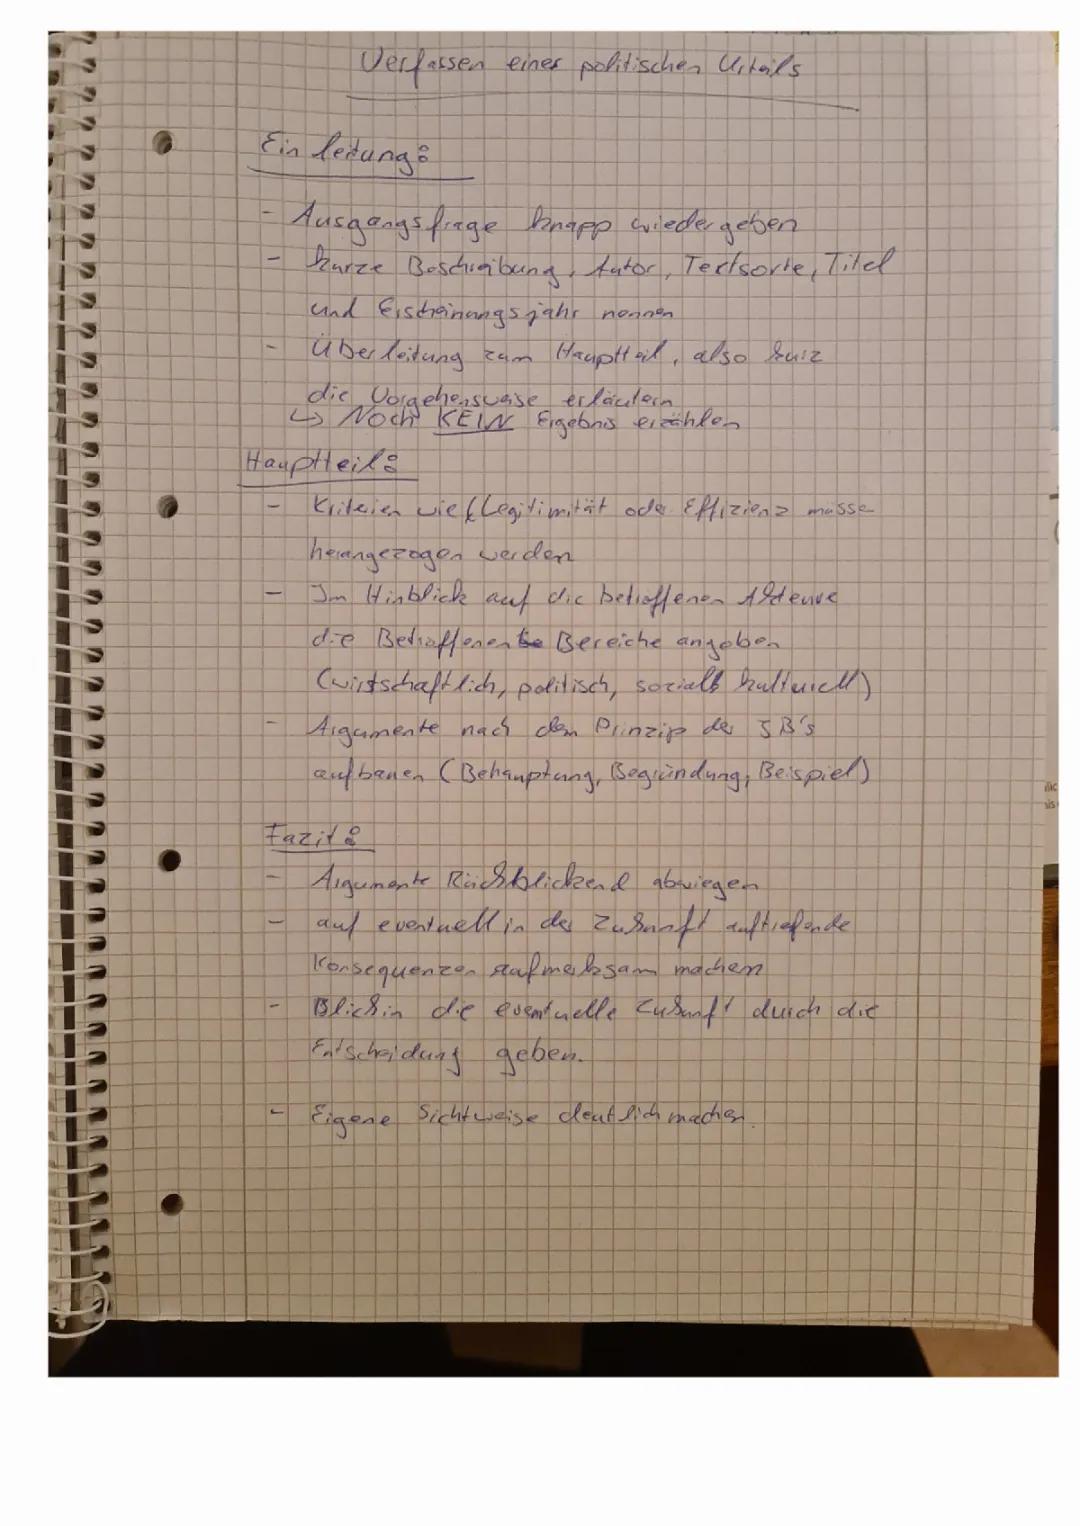 Verfassen eines politischen Urteils
Einleitung:
- Ausgangsfrage knapp wiedergeben
- kurze Beschreibung, Autor, Textsorte, Titel
und Erscheinungsjahr nennen
- Überleitung zum Hauptteil, also kurz
die Vorgehensweise erläutern
↳ Noch KEIN Ergebnis erzählen
Hauptteil:
- Kriterien wie Legitimität oder Effizienz müssen
herangezogen werden
- Im Hinblick auf die betroffenen Akteure
die Betroffenen Bereiche angeben
(wirtschaftlich, politisch, sozial kulturell)
- Argumente nach dem Prinzip der 3B's
aufbauen (Behauptung, Begründung, Beispiel)
Fazit:
- Argumente Rückblickend abwiegen
- auf eventuell in der Zukunft auftrefende
Konsequenzen aufmerksam machen
- Blick in die eventuelle Zukunft durch die
Entscheidung geben.
- Eigene Sichtweise deutlich machen.